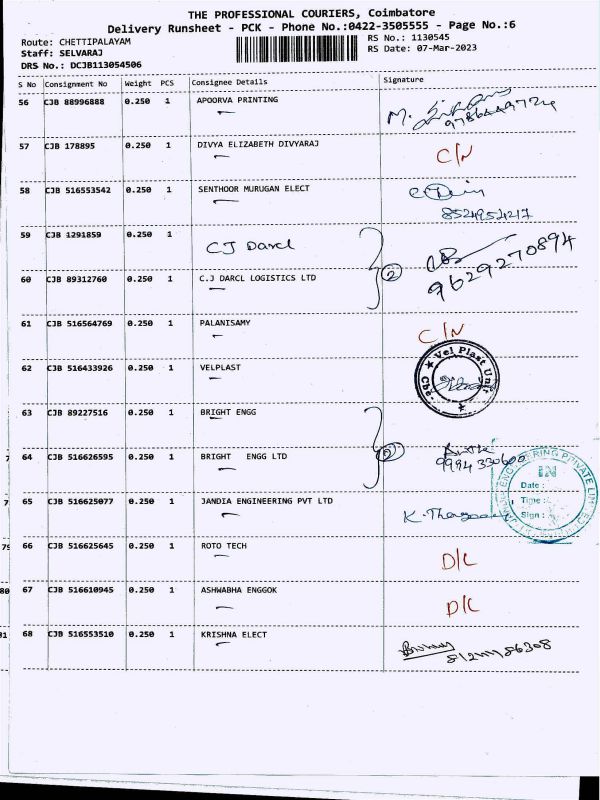 THE PROFESSIONAL COURIERS, Coimbatore
Delivery Runsheet - PCK - Phone No.:0422-3505555 - Page No.:6
Route: CHETTIPALAYAM RS No.: 1130545
Staff: SELVARAJ RS Date: 07-Mar-2023
DRS No.: DCJB113054506
S No Consignment No Weight PCS Consignee Details Signature
56 CJB 88996888 0.250 1 APOORVA PRINTING M.
57 CJB 178895 0.250 1 DIVYA ELIZABETH DIVYARAJ C/N
58 CJB 516553542 0.250 1 SENTHOOR MURUGAN ELECT
8524954217
59 CJB 1291859 0.250 1 CJ Darcl
2 9629270894
60 CJB 89312760 0.250 1 C.J DARCL LOGISTICS LTD
61 CJB 516564769 0.250 1 PALANISAMY C/N
62 CJB 516433926 0.250 1 VELPLAST Vel Plast Unit Cbe
63 CJB 89227516 0.250 1 BRIGHT ENGG
64 CJB 516626595 0.250 1 BRIGHT ENGG LTD 2 9994330600
65 CJB 516625077 0.250 1 JANDIA ENGINEERING PVT LTD
IN
Date :
Time :
Sign :
66 CJB 516625645 0.250 1 ROTO TECH D/L
67 CJB 516610945 0.250 1 ASHWABHA ENGGOK D/L
68 CJB 516553510 0.250 1 KRISHNA ELECT